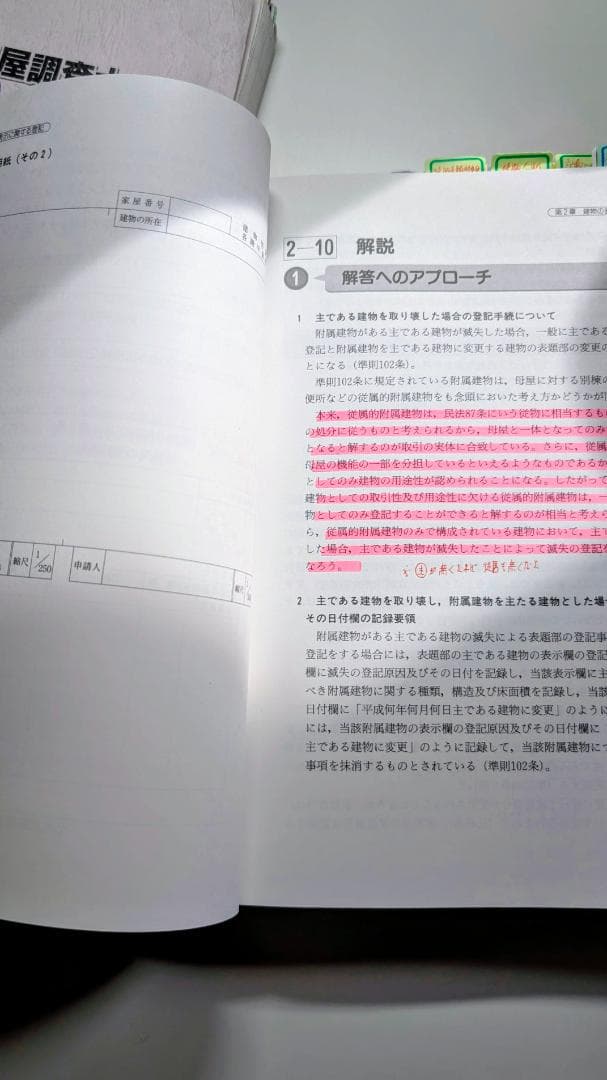 屋調査士
示に関する登記
用紙（その2）
家屋番号
建物の所在
縮尺 1/250
申請人
縮尺
第2章 建物の
2―10 解説
1 解答へのアプローチ
1 主である建物を取り壊した場合の登記手続について
附属建物がある主である建物が滅失した場合，一般に主である
登記と附属建物を主である建物に変更する建物の表題部の変更の
とになる（準則102条）。
準則102条に規定されている附属建物は，母屋に対する別棟の
便所などの従属的附属建物をも念頭においた考え方かどうかが
本来，従属的附属建物は，民法87条にいう従物に相当するも
の処分に従うものと考えられるから，母屋と一体となってのみ
となると解するのが取引の実体に合致している。さらに，従属
母屋の機能の一部を分担しているといえるようなものであるか
としてのみ建物の用途性が認められることになる。したがって
建物としての取引性及び用途性に欠ける従属的附属建物は，一
物としてのみ登記することができると解するのが相当と考えら
ら，従属的附属建物のみで構成されている建物において，主で
した場合，主である建物が滅失したことによって滅失の登記を
なろう。
2 主である建物を取り壊し，附属建物を主たる建物とした場
その日付欄の記録要領
附属建物がある主である建物の滅失による表題部の登記事
登記をする場合には，表題部の主である建物の表示欄の登記
欄に滅失の登記原因及びその日付を記録し，当該表示欄に主
べき附属建物に関する種類，構造及び床面積を記録し，当
日付欄に「平成何年何月何日主である建物に変更」のように
には，当該附属建物の表示欄の登記原因及びその日付欄に「
主である建物に変更」のように記録して，当該附属建物に
事項を抹消するものとされている（準則102条）。